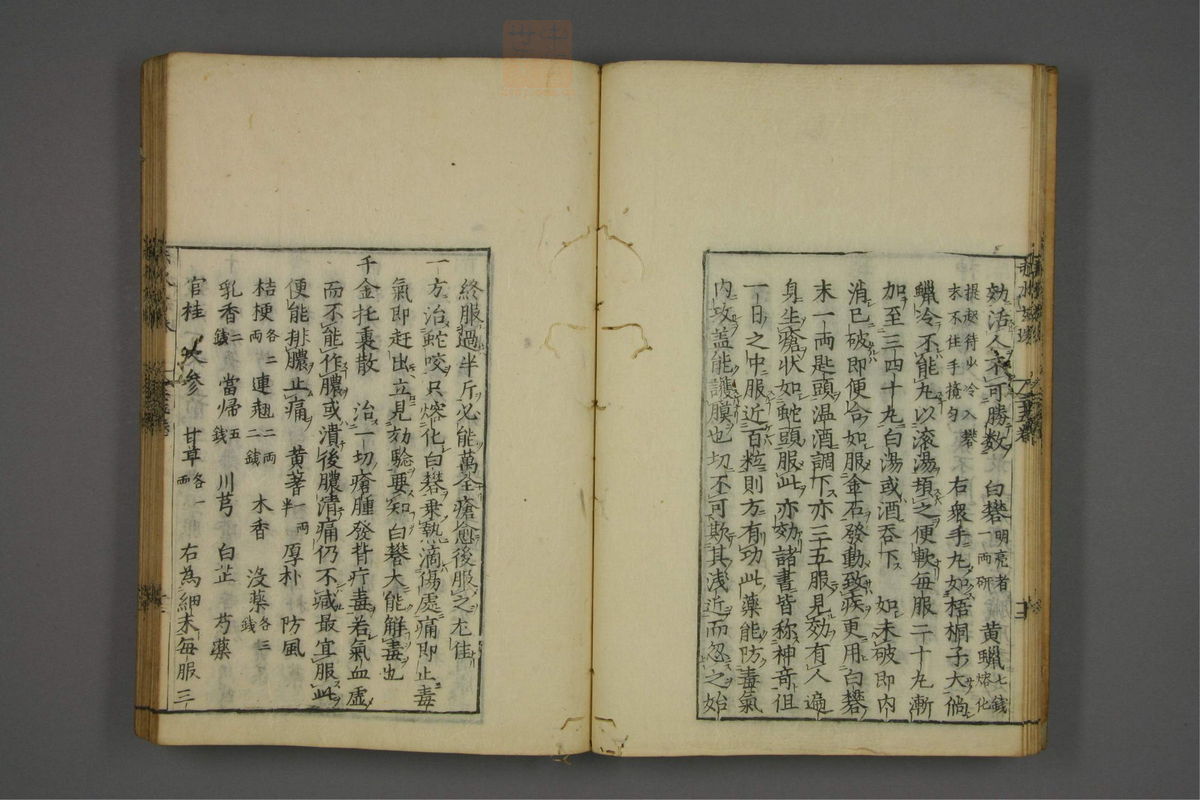 効活人不可勝数 白礬明亮者一両研 黄蠟七錢熔化
提起待少冷入礬末不住手攪匀 右衆手丸如梧桐子大倘
蠟冷不能丸以滚湯頓之便軟毎服二十丸漸
加至三四十丸白湯或酒吞下 如未破即内
消已破即便合如服金石發動致疾更用白礬
末一両匙頭温酒調下亦三五服見効有人適
身生瘡状如蛇頭服此亦効諸書皆称神竒但
一日之中服近百粒則方有功此薬能防毒氣
内攻盖能護膜也切不可欺其浅近而忽之始
終服過半斤必能萬全瘡愈後服之尤佳
一方治蛇咬只熔化白礬乗熱滴傷處痛即止毒
氣即赶出立見効驗要知白礬大能解毒也
千金托裏散 治一切瘡腫發背疔毒若氣血虚
而不能作膿或潰後膿清痛仍不減最宜服此
便能排膿止痛 黄蓍一両半 厚朴 防風
桔梗各二両 連翹二両二錢 木香 没薬各三錢
乳香二錢 當帰五錢 川芎 白芷 芍薬
官桂 人参 甘草各一両 右為細末毎服三